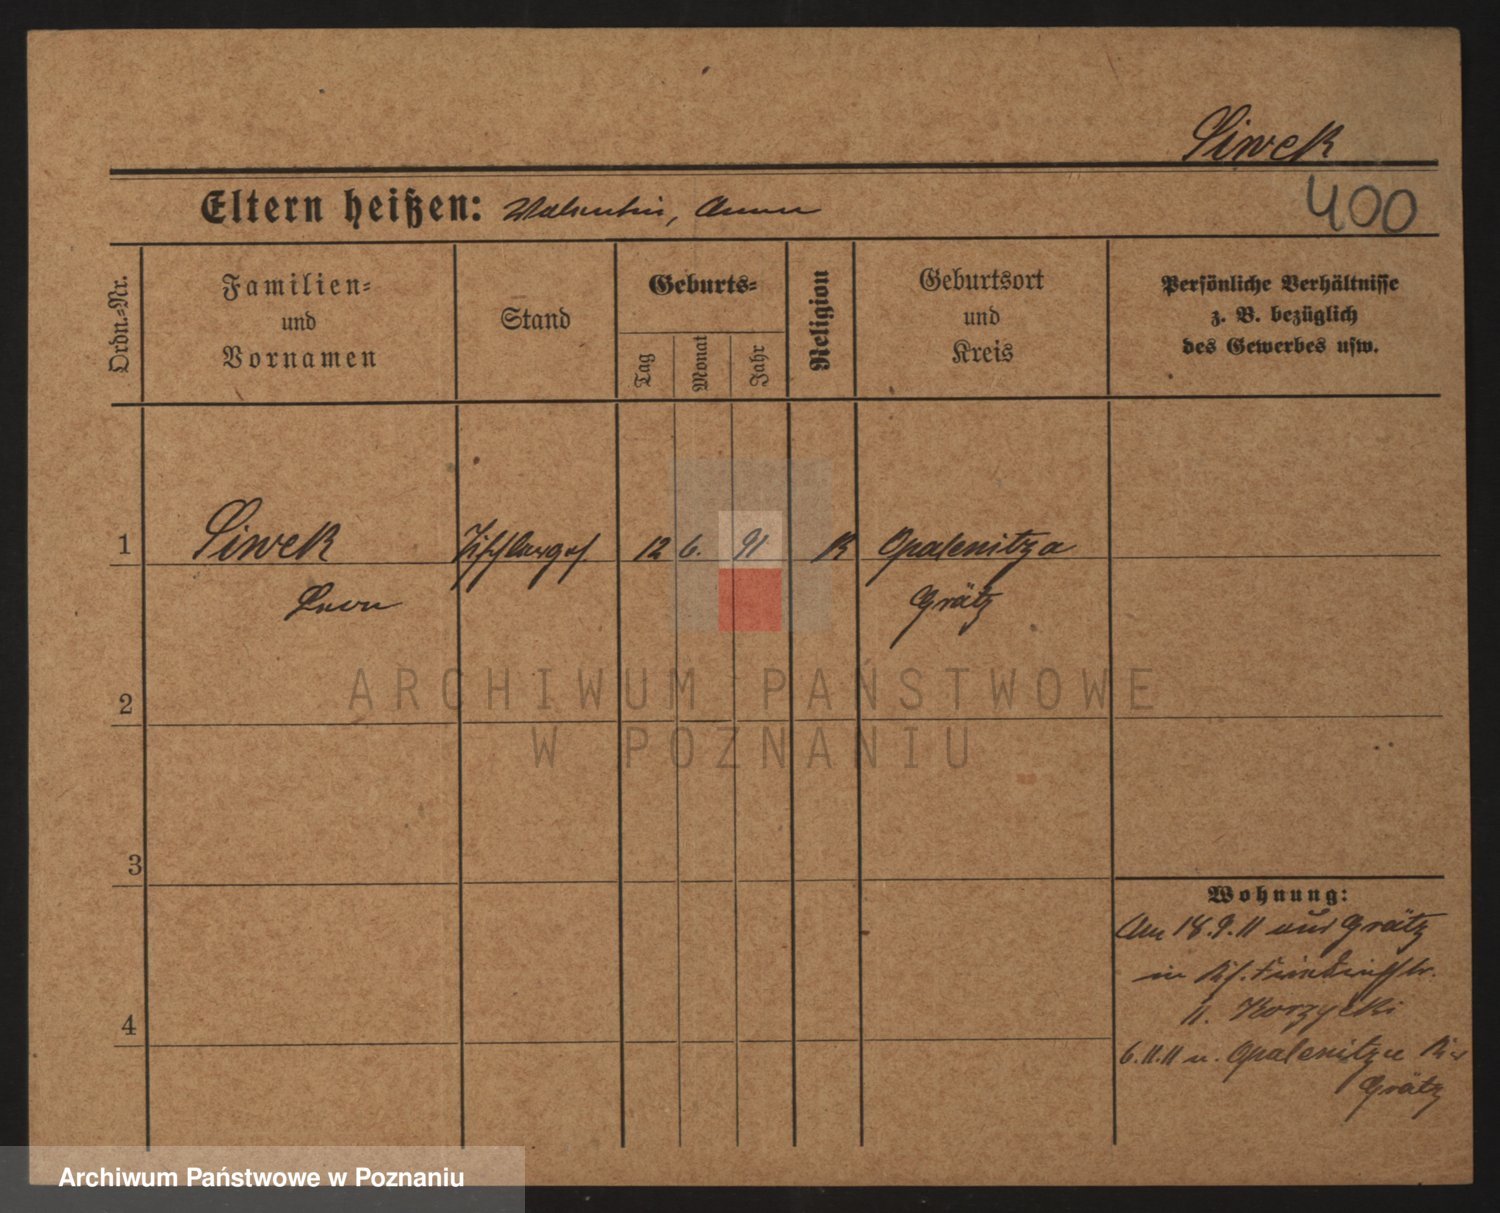 Siwek
400
Eltern heißen: Valentin, Anna
Ordn.=Nr.
Familien=
und
Vornamen
Stand
Geburts=
Tag
Monat
Jahr
Religion
Geburtsort
und
Kreis
Persönliche Verhältnisse
z. B. bezüglich
des Gewerbes usw.
1 Siwek Tischlerges. 12 6. 91 K Opalenitza
Leon Grätz
2
3
4
Wohnung:
Am 18.9.11 aus Grätz
in
11. Korzycki
6.11.11 n. Opalenitza Kr
Grätz
ARCHIWUM PAŃSTWOWE
W POZNANIU
Archiwum Państwowe w Poznaniu